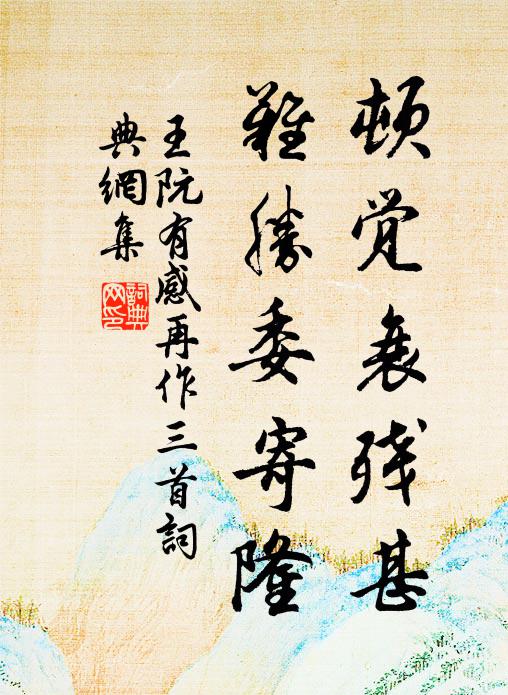 顿觉衰残甚
难胜委寄隆
王阮有感再作三首詞
典網集
詞典
网印